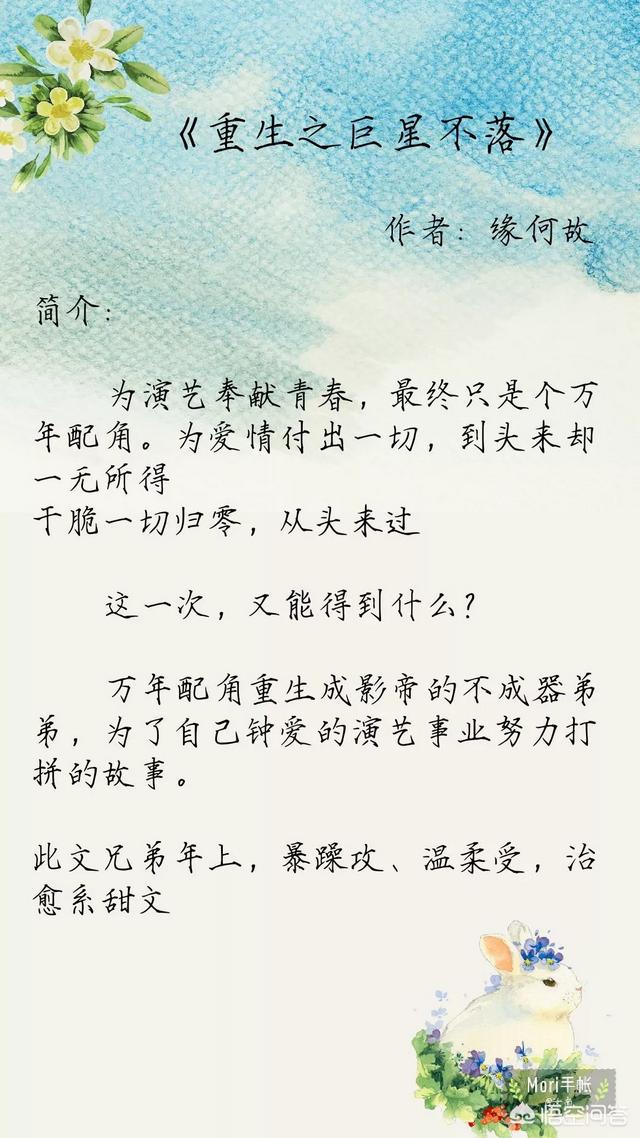 《重生之巨星不落》
作者：缘何故
简介：
为演艺奉献青春，最终只是个万
年配角。为爱情付出一切，到头来却
一无所得
干脆一切归零，从头来过
这一次，又能得到什么？
万年配角重生成影帝的不成器弟
弟，为了自己钟爱的演艺事业努力打
拼的故事。
此文兄弟年上，暴躁攻、温柔受，治
愈系甜文
Mori手帐
悟空问答